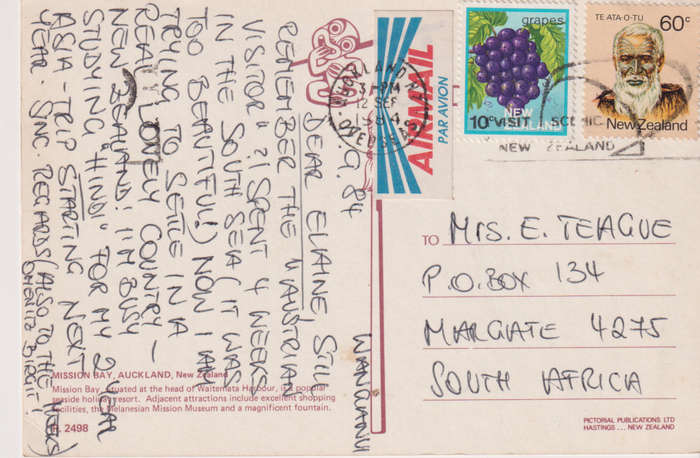 9. 84
WANGANUI
DEAR ELIANE STILL
REMEMBER THE "AUSTRIAN
VISITOR"?! I SPENT 4 WEEKS
IN THE SOUTH SEA (IT WAS
TOO BEAUTIFUL!) NOW I AM
TRYING TO SETTLE IN A
REALLY LOVELY COUNTRY –
NEW ZEALAND! I'M BUSY
STUDYING "HINDI" FOR MY 2 YEAR
ASIA-TRIP STARTING NEXT
YEAR. SINC. REGARDS (ALSO TO THE
BIRGIT!
AIRMAIL
PAR AVION
12 SEP
1984
grapes
10c
NEW
ZEALAND
TE ATA-O-TU
60c
New Zealand
VISIT SCENIC
NEW ZEALAND
TO MRS. E. TEAGUE
P.O. BOX 134
MARGATE 4275
SOUTH AFRICA
MISSION BAY, AUCKLAND, New Zealand
Mission Bay, situated at the head of Waitemata Harbour, is a popular
seaside holiday resort. Adjacent attractions include excellent shopping
facilities, the Melanesian Mission Museum and a magnificent fountain.
H. 2498
PICTORIAL PUBLICATIONS LTD
HASTINGS ... NEW ZEALAND